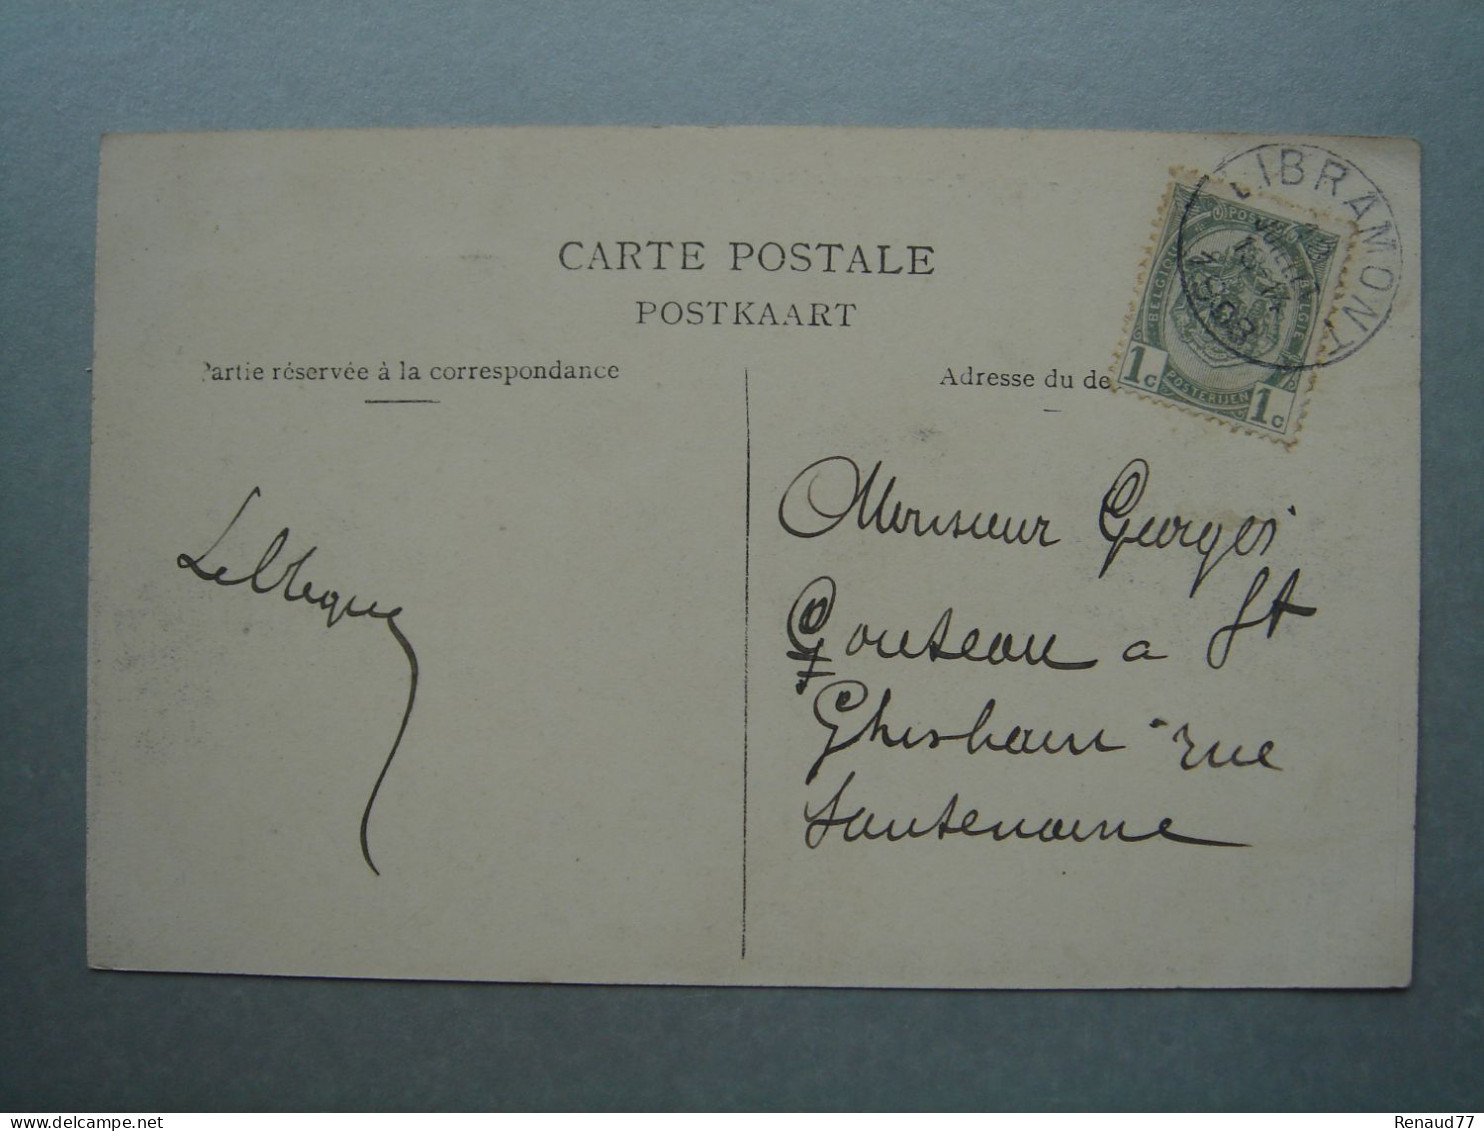 LIBRAMONT
1908
POSTERIJEN
1c 1c
CARTE POSTALE
POSTKAART
Partie réservée à la correspondance
Adresse du de
Monsieur Georges
Gouteau a St
Ghislain rue
delcampe.net
Renaud77